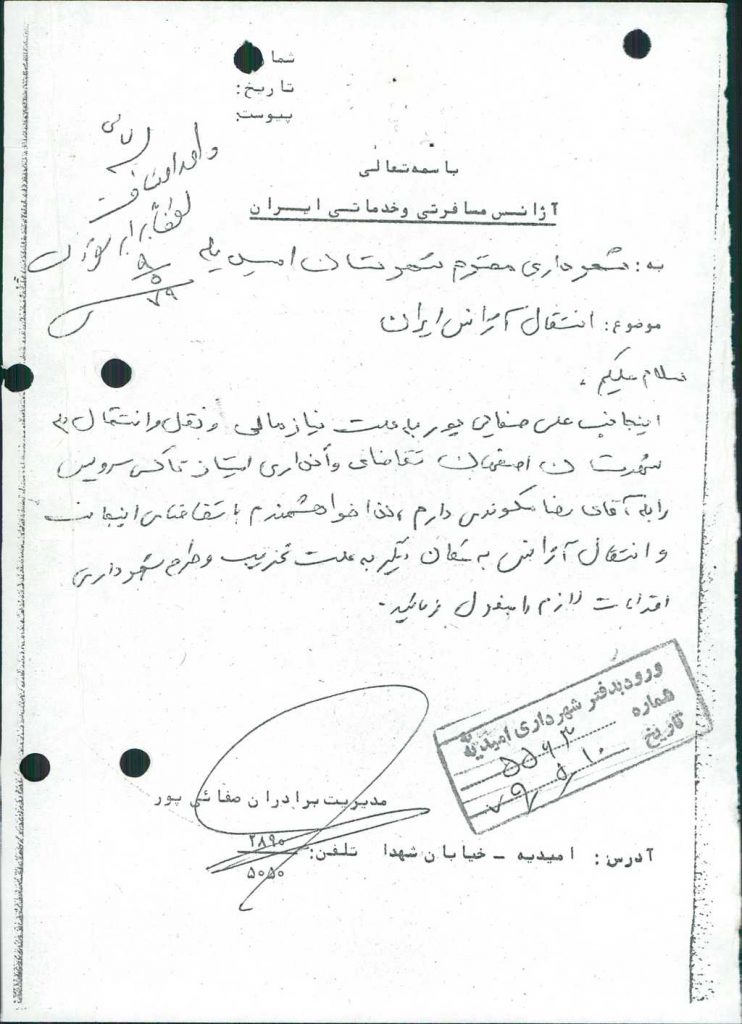 شماره
تاریخ:
پیوست:
باسمه‌تعالی
آژانس مسافرتی و خدماتی ایران
به: شهرداری محترم شهرستان امیدیه
موضوع: انتقال آژانس ایران
سلام علیکم،
اینجانب علی صفایی پور به علت نیاز مالی و نقل و انتقال به
شهرستان اصفهان تقاضای واگذاری امتیاز تاکسی سرویس
را به آقای رضا دارم، لذا خواهشمندم با تقاضای اینجانب
و انتقال آژانس به مکان دیگر به علت تخریب و طرح شهرداری
اقدامات لازم را مبذول فرمائید.
ورود به دفتر شهرداری امیدیه
شماره ۵۵۶۳
تاریخ ۷۹/۵/۱۰
مدیریت برادران صفائی پور
آدرس: امیدیه – خیابان شهدا تلفن: ۲۸۹۰
۵۰۵۰
واحد
لطفاً برابر
۹/۵/۷۹